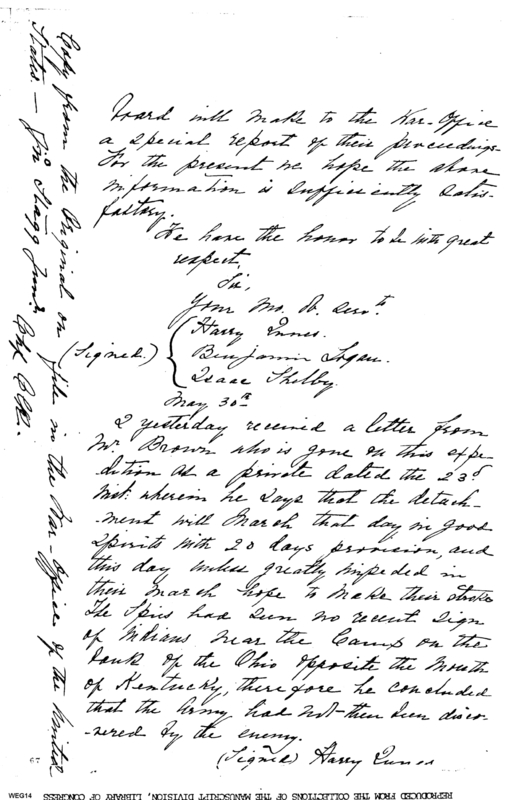 board will make to the War-Office
a special report of their proceedings.
For the present we hope the above
information is sufficiently satis-
factory.
We have the honor to be with great
respect,
Sir,
Your Mo. Ob. Servts.
(Signed.)
Harry Innes.
Benjamin Logan.
Isaac Shelby.
May 30th
I yesterday received a letter from
Mr Brown who is gone on this expe-
dition as a private dated the 23d
inst. wherein he says that the detach-
-ment will March that day in good
spirits with 20 days provision, and
this day unless greatly impeded in
their march hope to make their stroke
The Spies had seen no recent sign
of Indians near the Camp on the
bank of the Ohio opposite the Mouth
of Kentucky, therefore he concluded
that the Army had not then been disco-
-vered by the enemy.
(Signed) Harry Innes
Copy from the Original on file in the War-Office of the United
States. — Jno Stagg Junr. Chf Clk.
67
WEG14
REPRODUCED FROM THE COLLECTIONS OF THE MANUSCRIPT DIVISION, LIBRARY OF CONGRESS